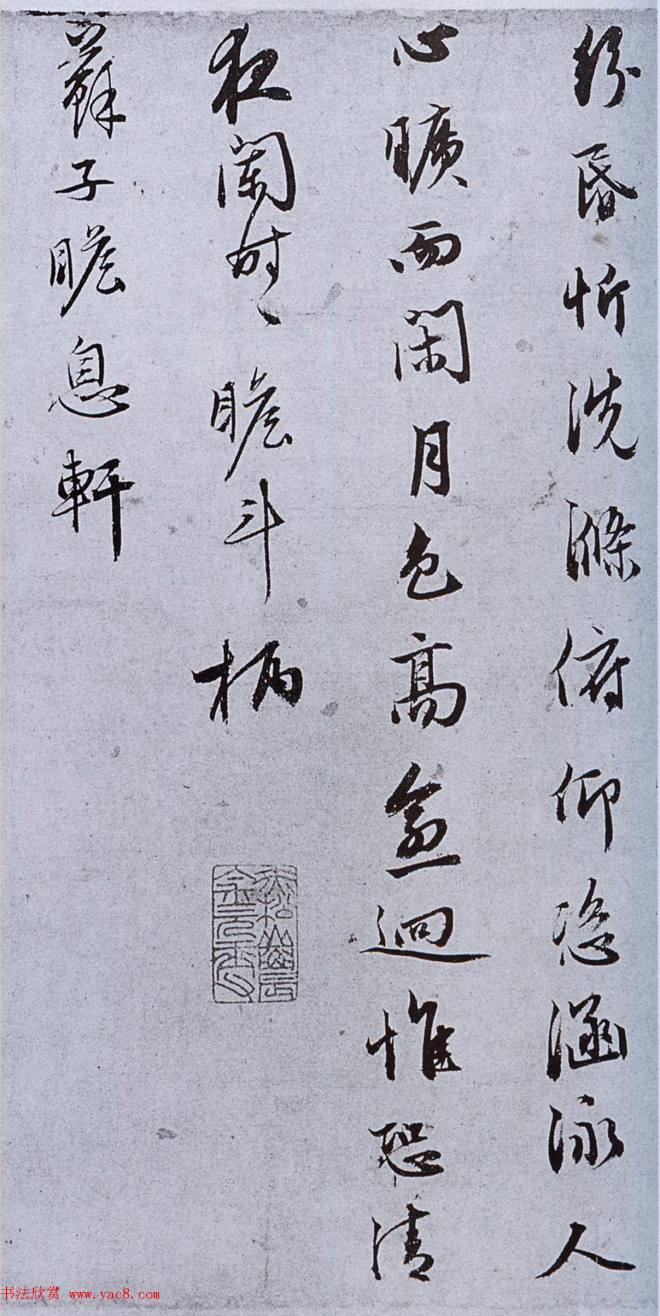 紛昏忻洗滌俯仰恣涵泳人
心曠而闲月色高愈迥惟恐清
夜闌時〻瞻斗柄
蘇子瞻息軒
书法欣赏 www.yac8.com